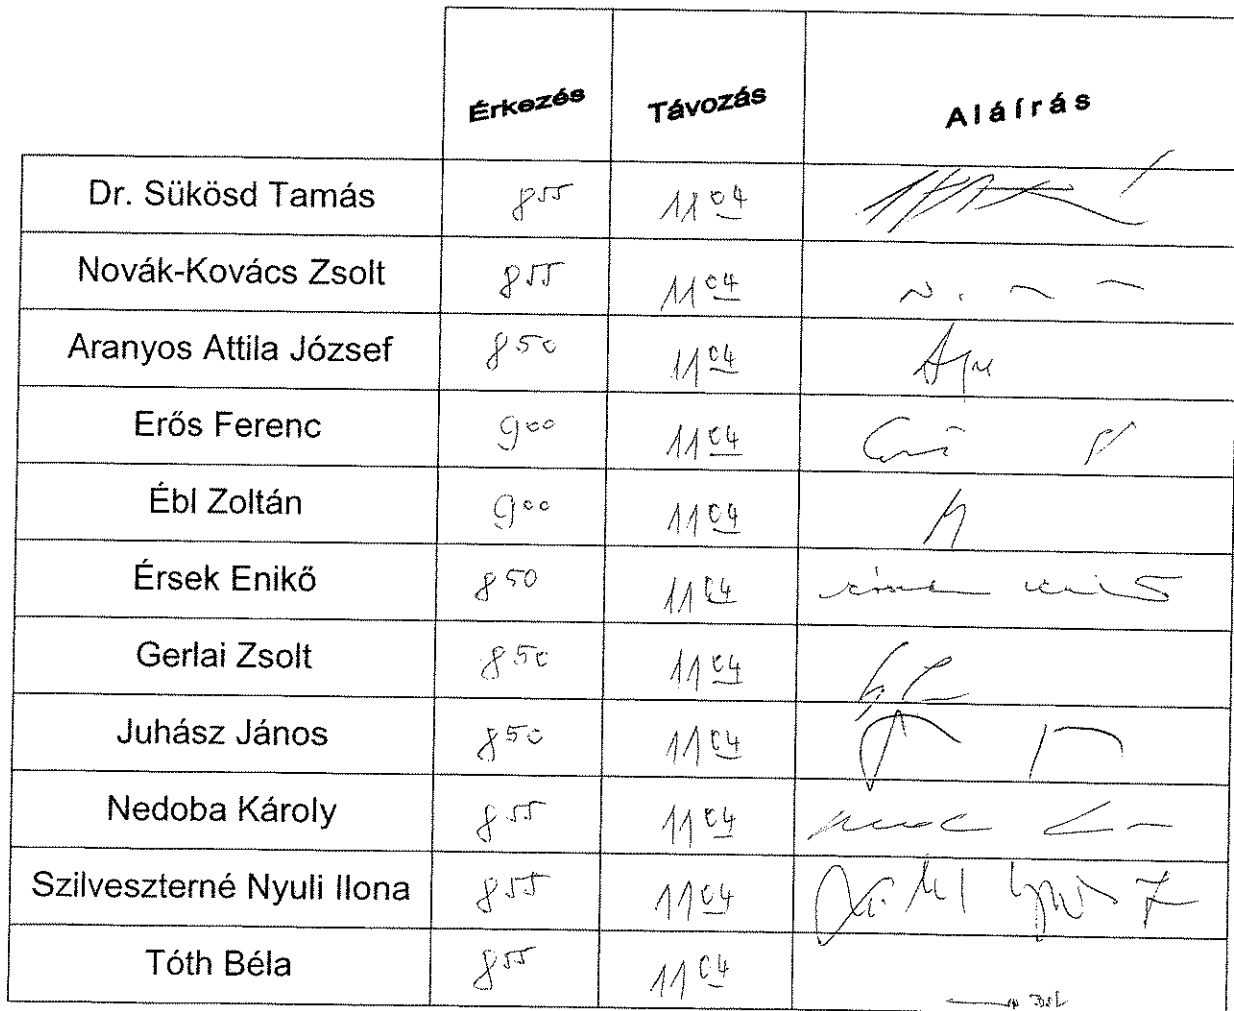 Érkezés Távozás Aláírás
Dr. Sükösd Tamás 8 55 11 04
Novák-Kovács Zsolt 8 55 11 04
Aranyos Attila József 8 50 11 04
Erős Ferenc 9 00 11 04
Ébl Zoltán 9 00 11 04
Érsek Enikő 8 50 11 04
Gerlai Zsolt 8 50 11 04
Juhász János 8 50 11 04
Nedoba Károly 8 55 11 04
Szilveszterné Nyuli Ilona 8 55 11 04
Tóth Béla 8 55 11 04